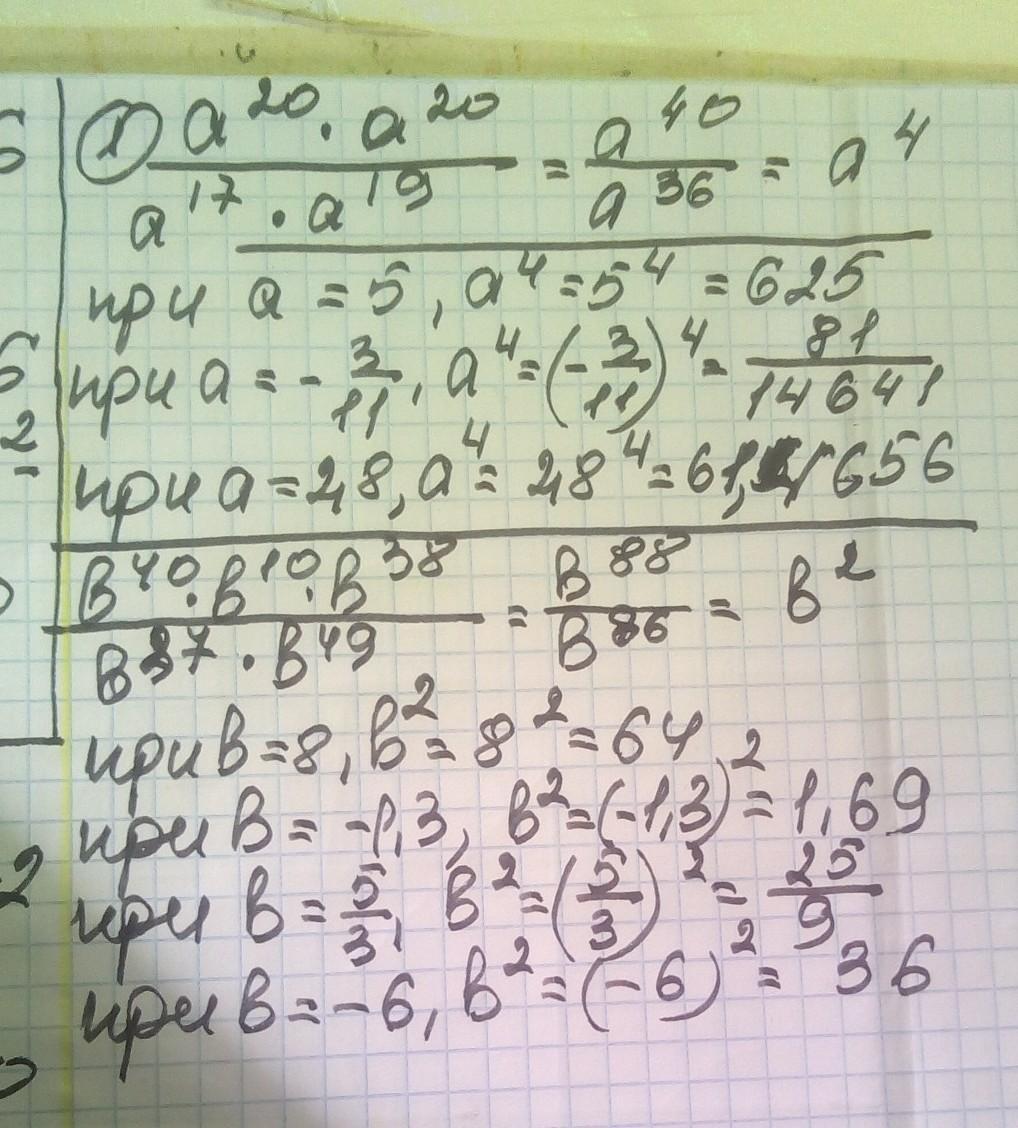 ① a²⁰ · a²⁰ / a¹⁷ · a¹⁹ = a⁴⁰ / a³⁶ = a⁴
при a = 5, a⁴ = 5⁴ = 625
при a = - 3/11, a⁴ = (- 3/11)⁴ = 81/14641
при a = 2,8, a⁴ = 2,8⁴ = 61,4656
в⁴⁰ · в¹⁰ · в³⁸ / в³⁷ · в⁴⁹ = в⁸⁸ / в⁸⁶ = в²
при в = 8, в² = 8² = 64
при в = -1,3, в² = (-1,3)² = 1,69
при в = 5/3, в² = (5/3)² = 25/9
при в = -6, в² = (-6)² = 36